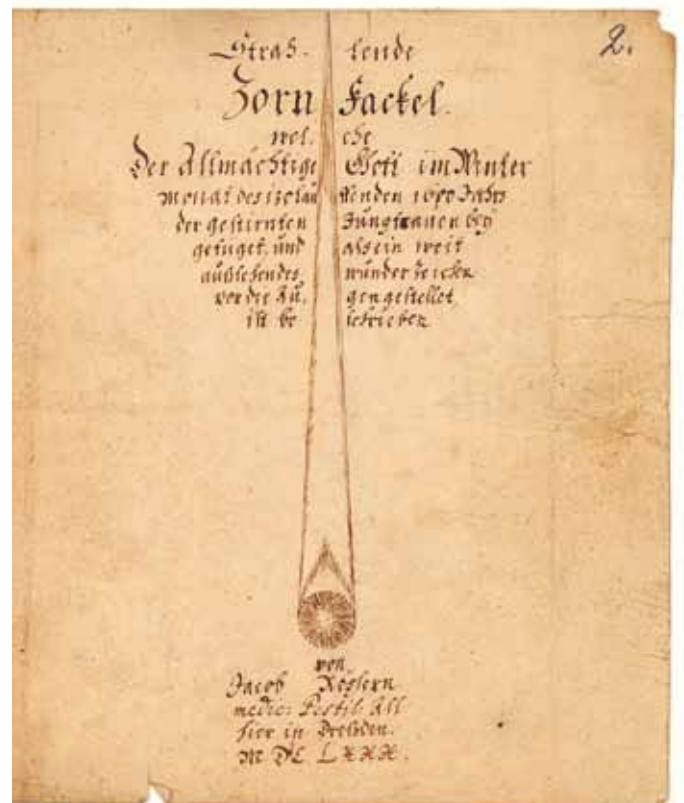 2.
Strah- lende
Zorn Fackel.
wel- che
Der Allmächtige Gott im Winter
monat des izo lau ffenden 1680 Jahrs
der gestirnten Jungfrauen bey
gefüget, und als ein weit
außsehendes wunder zeichen
vor die Au- gen gestellet
ist be schrieben
von
Jacob
medic: Pestil: All
hier in Dresden.
M DC LXXX.